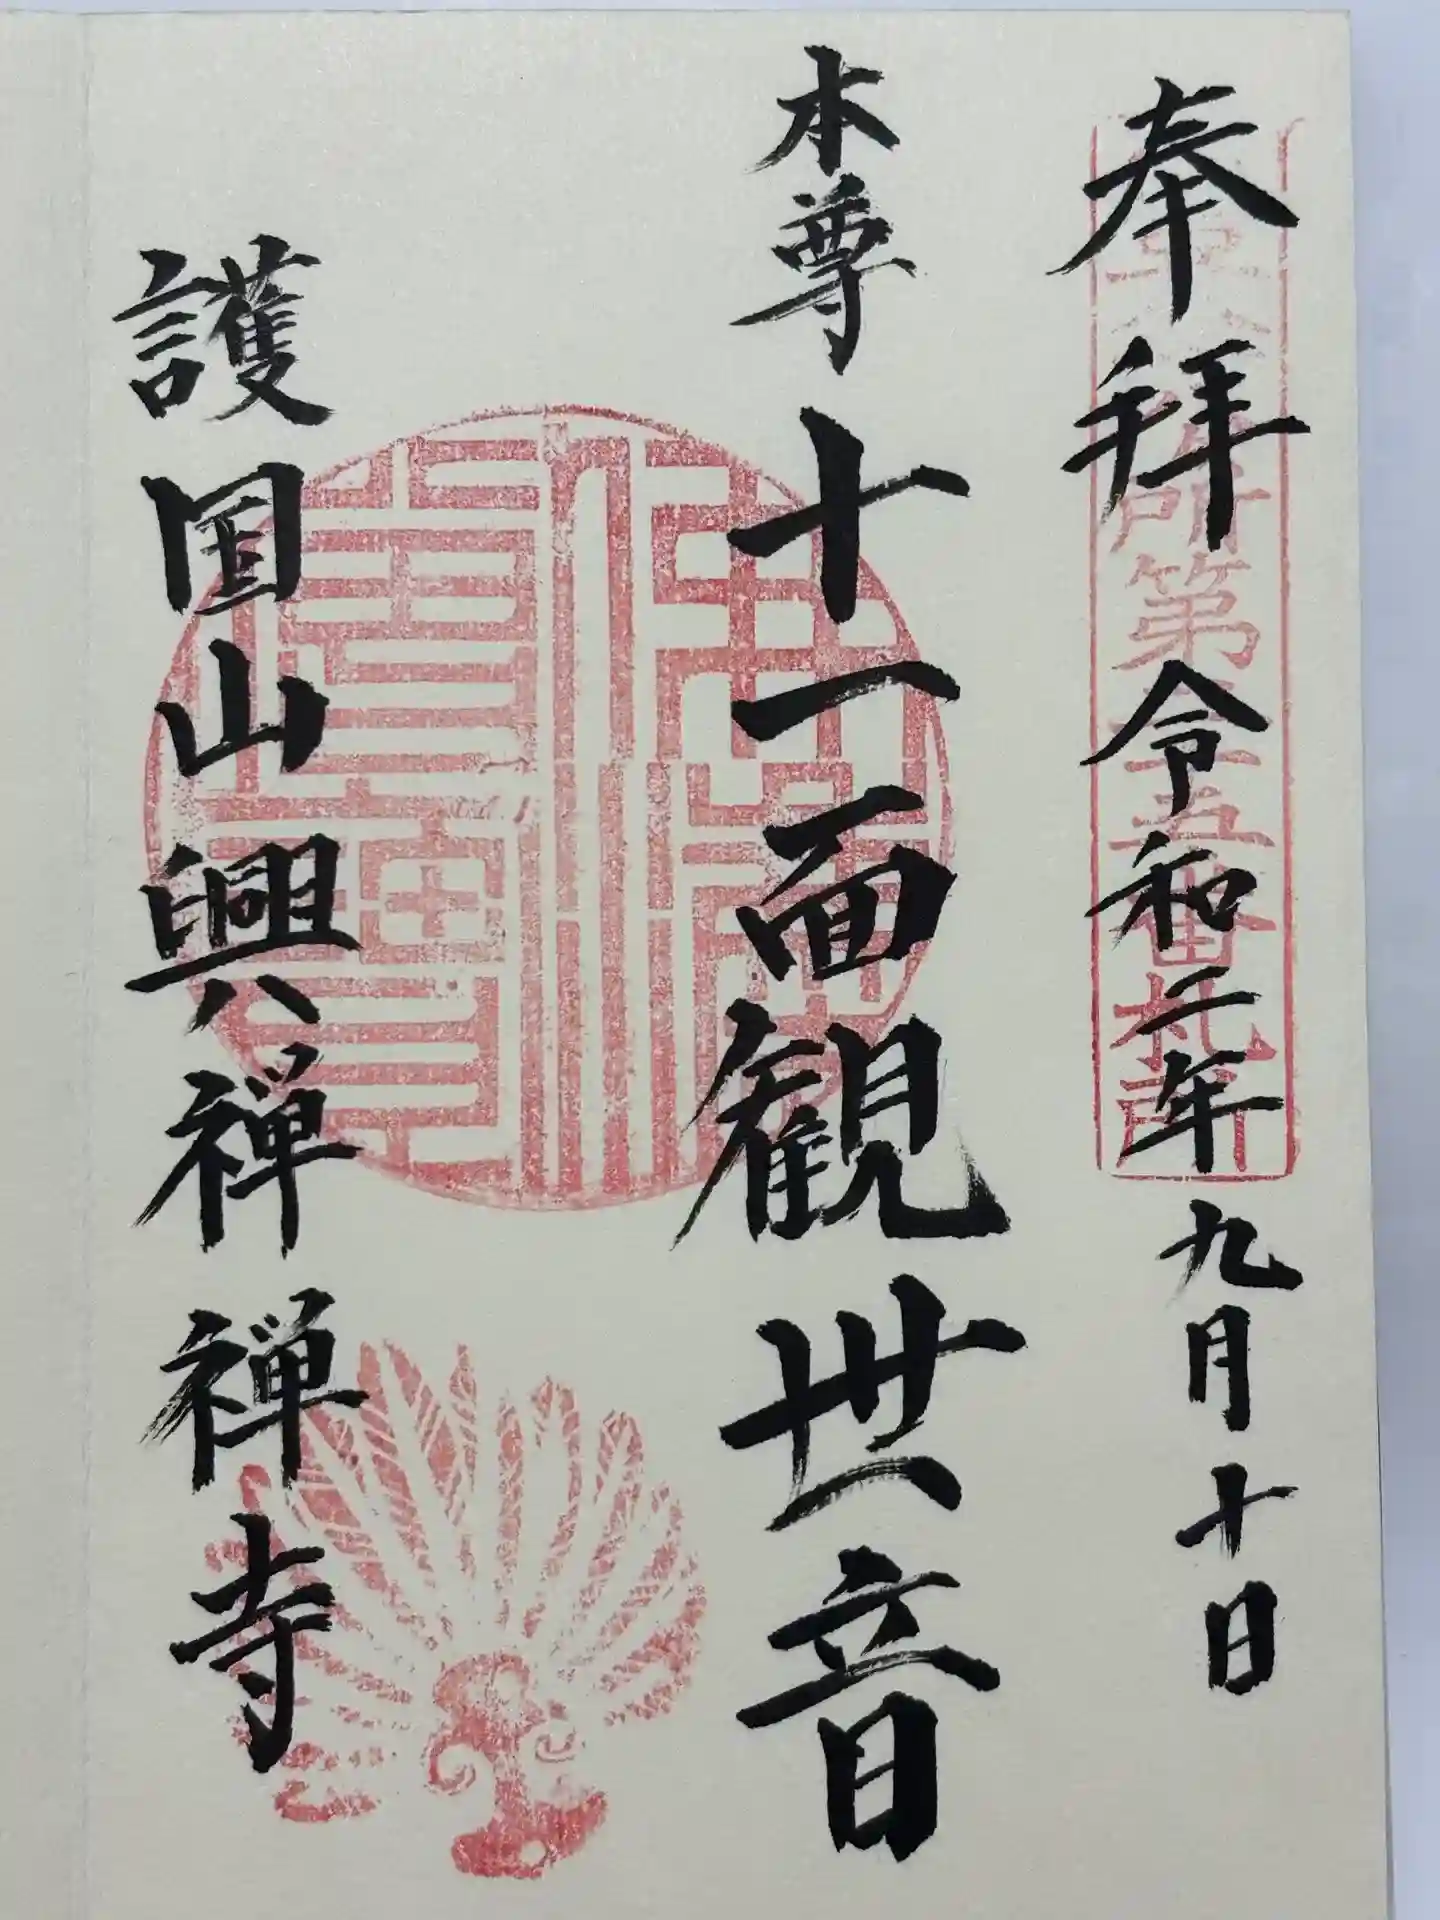 奉拝 令和二年九月十日
所第 五番札所
本尊 十一面観世音
佛法僧寶
護国山興禅禅寺